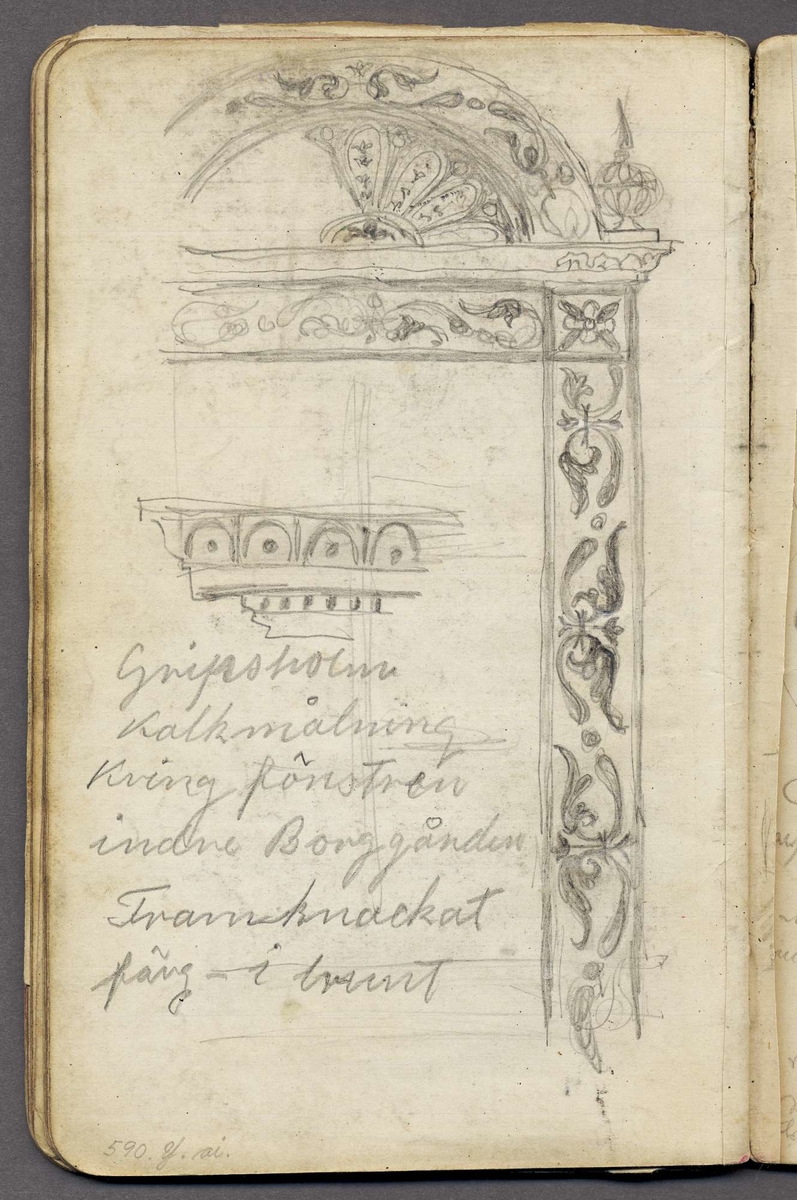 Gripsholm
Kalkmålning
Kring fönstren
inare Borggården
Framknackat
färg - i brunt
590. y. ai.